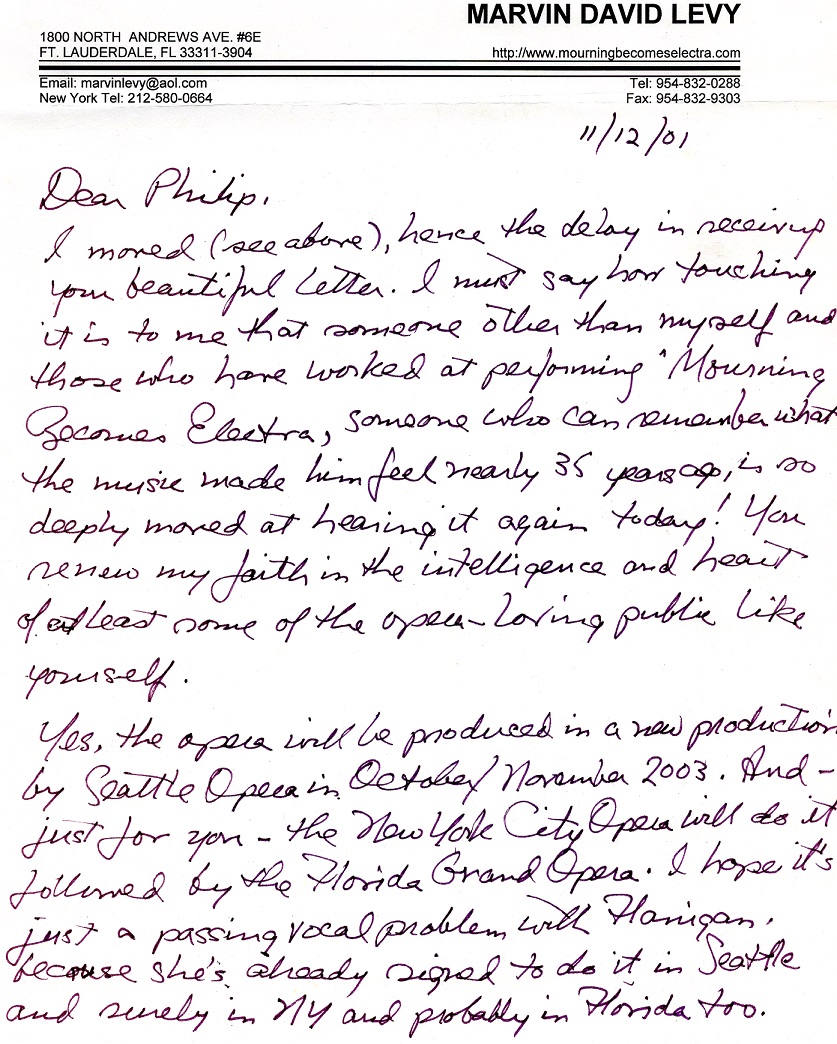 MARVIN DAVID LEVY
1800 NORTH ANDREWS AVE. #6E
FT. LAUDERDALE, FL 33311-3904
http://www.mourningbecomeselectra.com
Email: marvinlevy@aol.com
New York Tel: 212-580-0664
Tel: 954-832-0288
Fax: 954-832-9303
11/12/01
Dear Philip,
I moved (see above), hence the delay in receiving
your beautiful letter. I must say how touching
it is to me that someone other than myself and
those who have worked at performing "Mourning
Becomes Electra, someone who can remember what
the music made him feel nearly 35 years ago, is so
deeply moved at hearing it again today! You
renew my faith in the intelligence and heart
of at least some of the opera-loving public like
yourself.
Yes, the opera will be produced in a new production
by Seattle Opera in October/November 2003. And -
just for you - the New York City Opera will do it
followed by the Florida Grand Opera. I hope it's
just a passing vocal problem with Flanigan,
because she's already signed to do it in Seattle
and surely in NY and probably in Florida too.